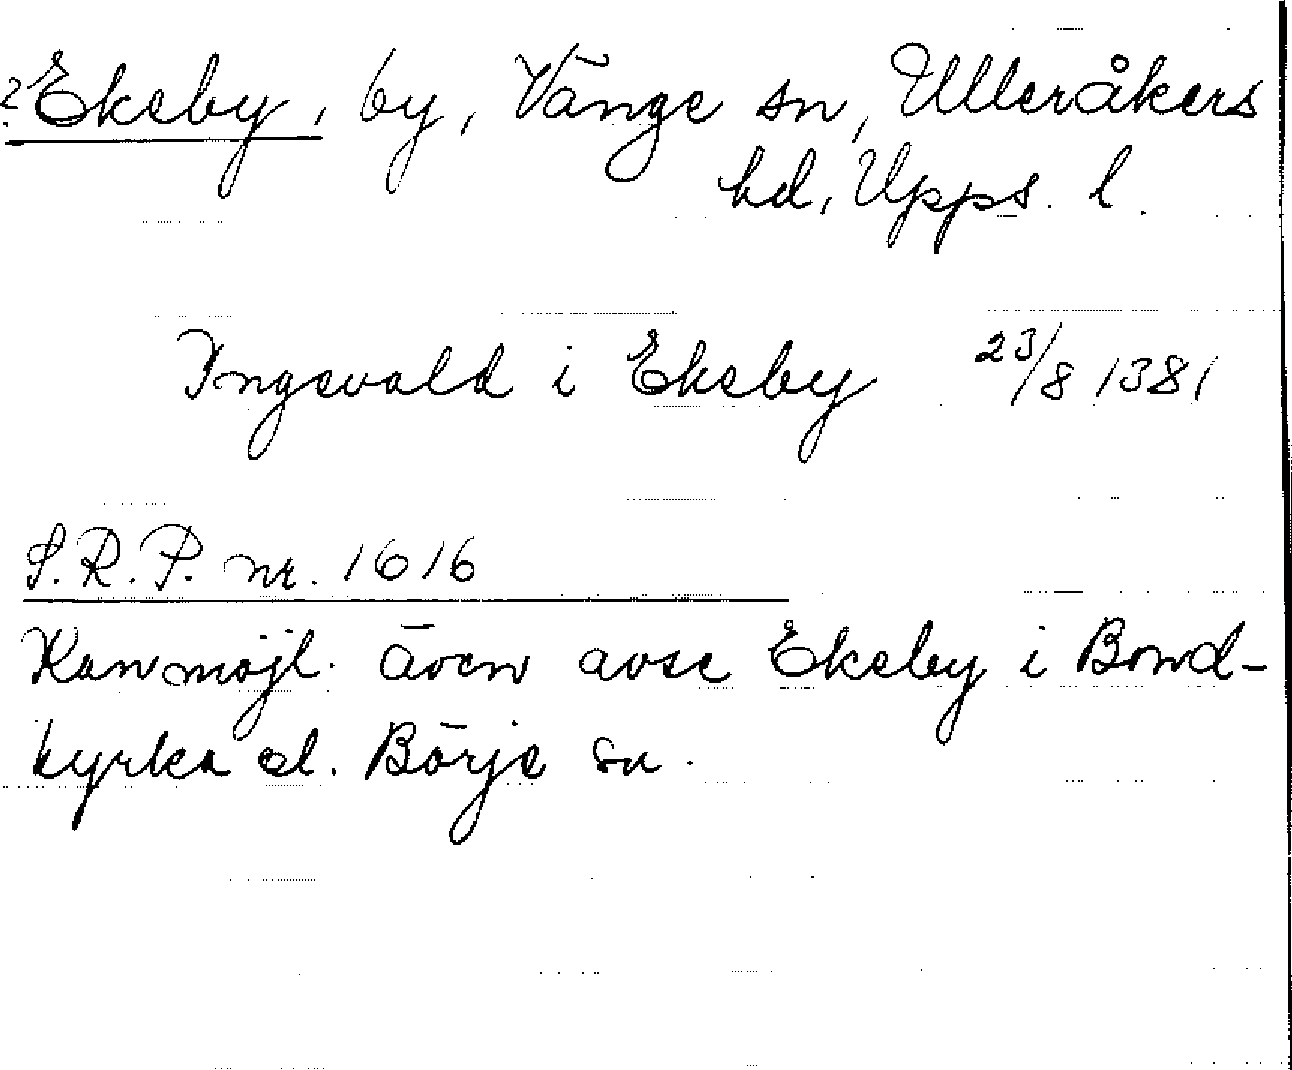 ? Ekeby, by, Vänge sn, Ulleråkers
hd, Upps. l.
Yngevald i Ekeby 23/8 1381
S.R.P. nr. 1616
Kan möjl. även avse Ekeby i Bond-
kyrka el. Börje sn.